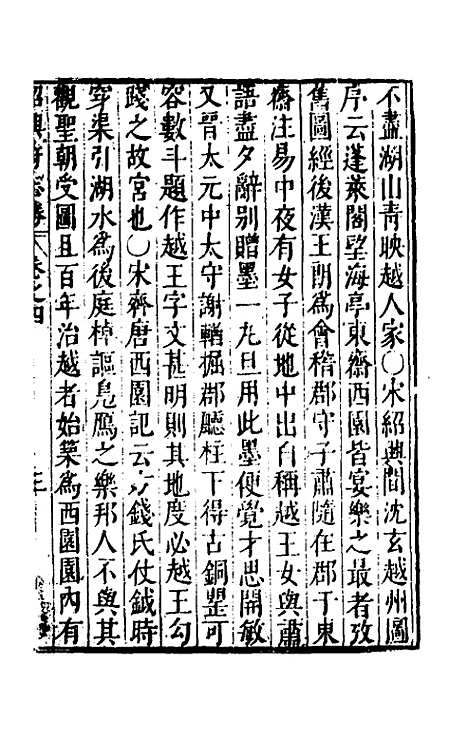 不盡湖山青映越人家○宋紹興間沈玄越州圖
序云蓬萊閣望海亭東齋西園皆宴樂之最者攷
舊圖經後漢王朗爲會稽郡守子肅隨在郡于東
齋注易中夜有女子從地中出自稱越王女與肅
語盡夕辭別贈墨一丸旦用此墨便覺才思開敏
又晉太元中太守謝輶掘郡廳柱下得古銅罌可
容數斗題作越王字文甚明則其地度必越王勾
踐之故宮也○宋齊唐西園記云錢氏仗鉞時
穿渠引湖水爲後庭棹謳鳧鴈之樂邦人不與其
觀聖朝受圖且百年治越者始築爲西園園內有
紹興府志卷八卷之四